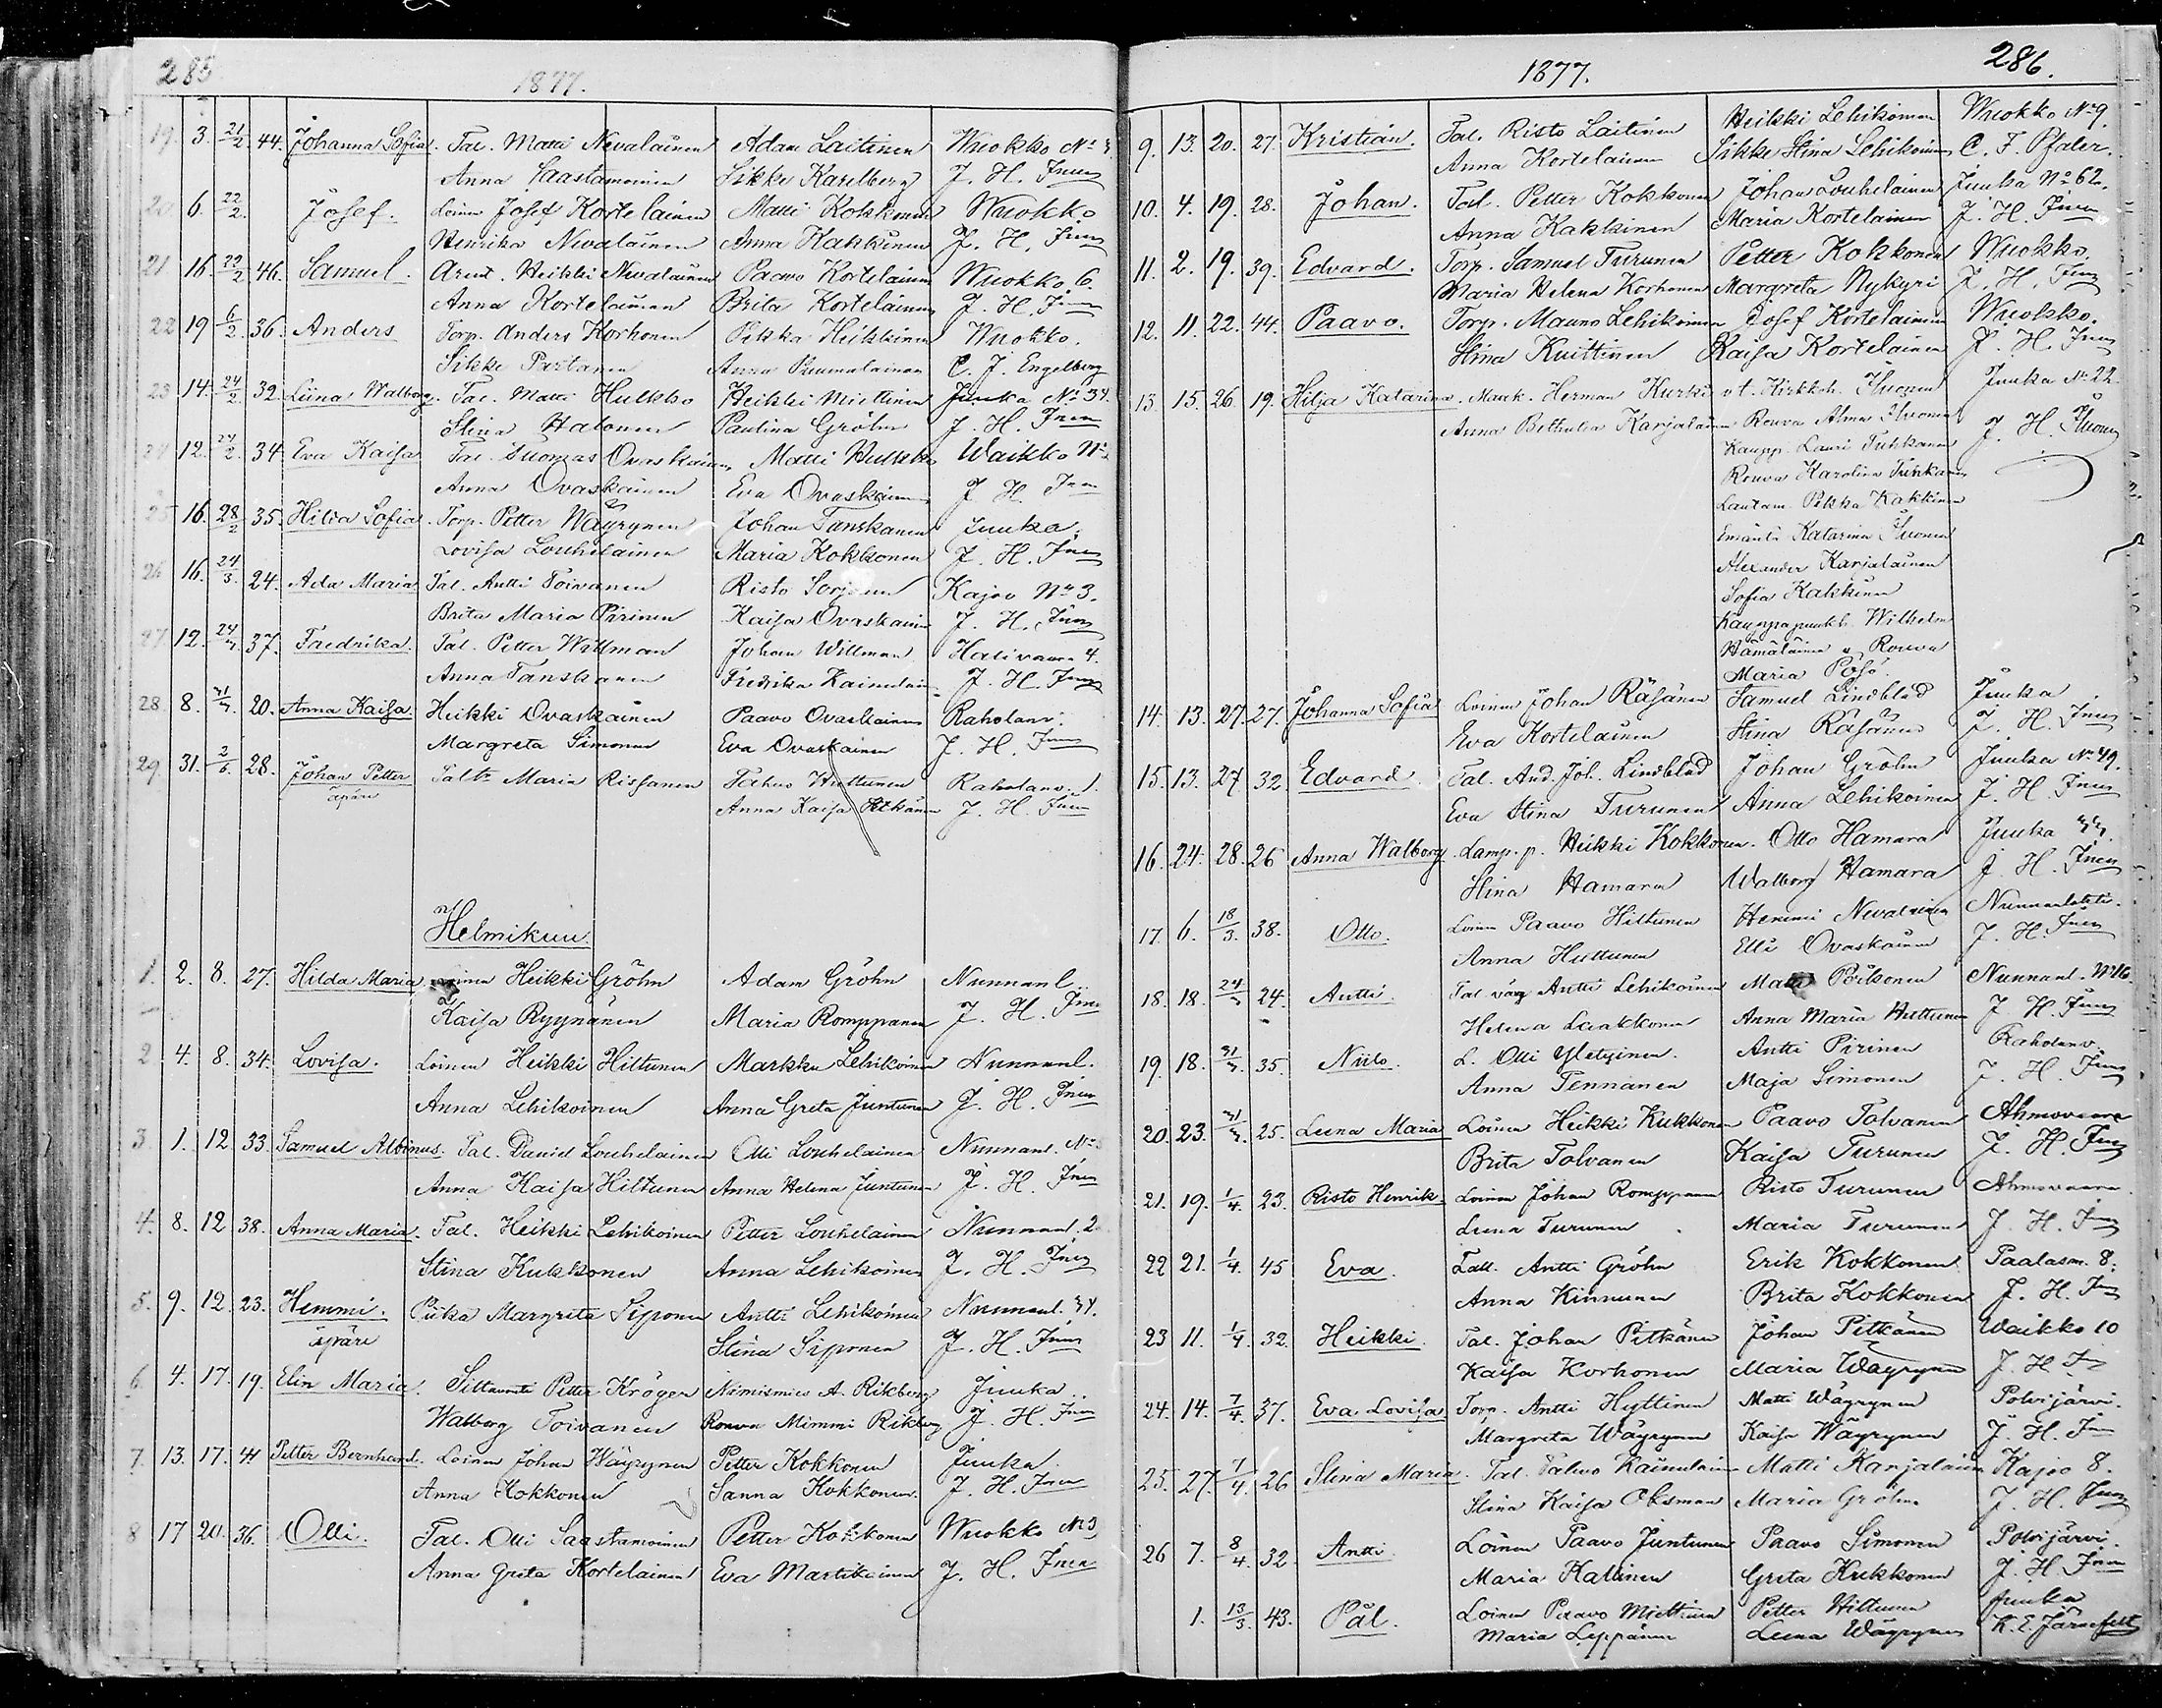 285
1877.
19. 3. 21/2. 44. Johanna Sofia. Tal. Maria Nevalainen Adam Laitinen Wuokko No
Anna Saastamoinen Sikke Karelberg J. H. Inen
20 6. 22/2. Josef. Loinen Josef Kortelainen Matti Kokkonen Wuokko
Henrika Nevalainen Anna Kakkinen J. H. Inen
21 16 22/2 46. Samuel. Arent. Heikki Nevalainen Paavo Kortelainen Wuokko 6.
Anna Kortelainen Brita Kortelainen J. H. Inen
22 19 6/2. 36. Anders Torp. Anders Korhonen Pekka Heikkinen Wuokko.
Sikke Partanen Anna Puumalainen C. J. Engelberg
23 14. 24/2. 32 Liina Walborg. Tal. Matti Hulkko Heikki Miettinen Juuka No 34.
Stina Halonen Paulina Gröhn J. H. Inen
24 12. 24/2. 34 Eva Kaisa Tal. Tuomas Ovaskainen Matti Hulkko Waikko No
Anna Ovaskainen Eva Ovaskainen J. H. Inen
25 16. 28/2 35. Hilda Sofia. Torp. Petter Wäyrynen Johan Tanskanen Juuka.
Lovisa Louhelainen Maria Kokkonen J. H. Inen
26 16. 24/3. 24. Ada Maria Tal. Antti Toivanen Risto Sorjonen Kajoo No 3.
Brita Maria Pirinen Kaisa Ovaskainen J. H. Inen
27. 12. 24/3. 37. Fredrika. Tal. Petter Willman Johan Willman Halivaara 4.
Anna Tanskanen Fredrika Kainulainen J. H. Inen
28. 8. 31/3. 20. Anna Kaisa Heikki Ovaskainen Paavo Ovaskainen Raholanv.
Margreta Simonen Eva Ovaskainen J. H. Inen
29. 31. 2/6. 28. Johan Petter Tal tr Maria Rissanen Huttunen Raholanv.
äpäre Anna Kaisa Pitkänen J. H. Inen
Helmikuu.
1. 2. 8. 27. Hilda Maria Loinen Heikki Gröhn Adam Gröhn Nunnanl.
Kaisa Ryynänen Maria Romppanen J. H. Inen
2 4. 8. 34. Lovisa. Loinen Heikki Hiltunen Markku Lehikoinen Nunnanl.
Anna Lehikoinen Anna Greta Juntunen J. H. Inen
3 1. 12. 33. Samuel Albinus. Tal. David Louhelainen Olli Louhelainen Nunnanl. No
Anna Kaisa Hiltunen Anna Helena Juntunen J. H. Inen
4. 8. 12 38. Anna Maria. Tal. Heikki Lehikoinen Petter Louhelainen Nunnanl. 2
Stina Kukkonen Anna Lehikoinen J. H. Inen
5. 9. 12. 23. Hemmi. Piika Margreta Siponen Antti Lehikoinen Nunnanl. 34.
äpäre Stina Siponen J. H. Inen
6. 4. 17. 19. Elin Maria. Siltavouti Petter Kröger Nimismies A. Rikberg Juuka.
Walborg Toivanen Rouva Mimmi Rikberg J. H. Inen
7. 13. 17. 41 Petter Bernhard. Loinen Johan Wäyrynen Petter Kokkonen Juuka.
Anna Kokkonen Sanna Kokkonen. J. H. Inen
8 17 20. 36. Olli. Tal. Olli Saastamoinen Petter Kokkonen Wuokko No 3
Anna Greta Kortelainen Eva Martikainen J. H. Inen
1877.
286.
9. 13. 20. 27. Kristian. Tal. Risto Laitinen Heikki Lehikoinen Wuokko No 9.
Anna Kortelainen Sikke Stina Lehikoinen C. F. Pfaler.
10. 4. 19. 28. Johan. Tal. Petter Kokkonen Johan Louhelainen Juuka No 62.
Anna Kakkinen Maria Kortelainen J. H. Inen
11. 2. 19. 39. Edvard. Torp. Samuel Turunen Petter Kokkonen Wuokko.
Maria Helena Korhonen Margreta Nykyri J. H. Inen
12. 11. 22. 44. Paavo. Torp. Mauno Lehikoinen Josef Kortelainen Wuokko.
Stina Kuittinen Kaisa Kortelainen J. H. Inen
13. 15. 26. 19. Hilja Katarina. Mauk. Herman Kurki vt. Kirkkoh. Ihonen Juuka No 22
Anna Bethulia Karjalainen Rouva Alma Ihonen J. H. Ihonen
Kaupp. Lauri Tuhkanen
Rouva Karolina Tuhkanen
Lautam. Pekka Kakkinen
Emäntä Katarina
Alexander Karjalainen
Sofia Kakkinen
Kauppapuukh. Wilhelm
Hämäläinen ja Rouva
Maria Pösö.
14. 13. 27. 27. Johanna Sofia Loinen Johan Räsänen Samuel Lindblad Juuka
Eva Kortelainen Stina Räsänen J. H. Inen
15. 13. 27 32 Edvard Tal. And. Joh. Lindblad Johan Gröhn Juuka No 49.
Eva Stina Turunen Anna Lehikoinen J. H. Inen
16. 24. 28. 26 Anna Walborg. Lamp. p. Heikki Kokkonen. Otto Hamara Juuka 33.
Stina Hamara Walborg Hamara J. H. Inen
17. 6. 18/3. 38. Otto. Loinen Paavo Hiltunen Hemmi Nevalainen Nunnanlahti.
Anna Huttunen Elli Ovaskainen J. H. Inen
18. 18. 24/3 24. Antti. Tal väv Antti Lehikoinen Matti Poikonen Nunnanl. No 16.
Helena Laakkonen Anna Maria Huttunen J. H. Inen
19. 18. 31/3. 35. Niilo. L. Olli Yletyinen. Antti Pirinen Raholanv.
Anna Tennanen Maja Simonen J. H. Inen
20. 23. 31/3. 25. Leena Maria Loinen Heikki Kukkonen Paavo Tolvanen Ahmovaara
Brita Tolvanen Kaisa Turunen J. H. Inen
21. 19. 1/4. 23. Risto Henrik. Loinen Johan Romppanen Risto Turunen Ahmovaara
Leena Turunen Maria Turunen J. H. Inen
22 21. 1/4. 45 Eva. Tall. Antti Gröhn Erik Kokkonen Paalasm. 8.
Anna Kinnunen Brita Kokkonen J. H. Inen
23 11. 1/4. 32. Heikki. Tal. Johan Pitkänen Johan Pitkänen Waikko 10
Kaisa Korhonen Maria Wäyrynen J. H. In
24. 14. 7/4. 37. Eva Lovisa Torp. Antti Hyttinen Matti Wäyrynen Polvijärvi.
Margreta Wäyrynen Kaisa Wäyrynen J. H. In
25. 27. 7/4. 26 Stina Maria. Tal. Paavo Kainulainen Matti Karjalainen Kajoo 8.
Stina Kaisa Oksman Maria Gröhn J. H. Inen
26 7. 8/4. 32. Antti Loinen Paavo Juntunen Paavo Simonen Polvijärvi.
Maria Kallinen Greta Kukkonen J. H. Inen
1. 13/3. 43. Pål. Loinen Paavo Miettinen Petter Hiltunen Juuka
Maria Leppänen Leena Wäyrynen K. E. Järnefelt